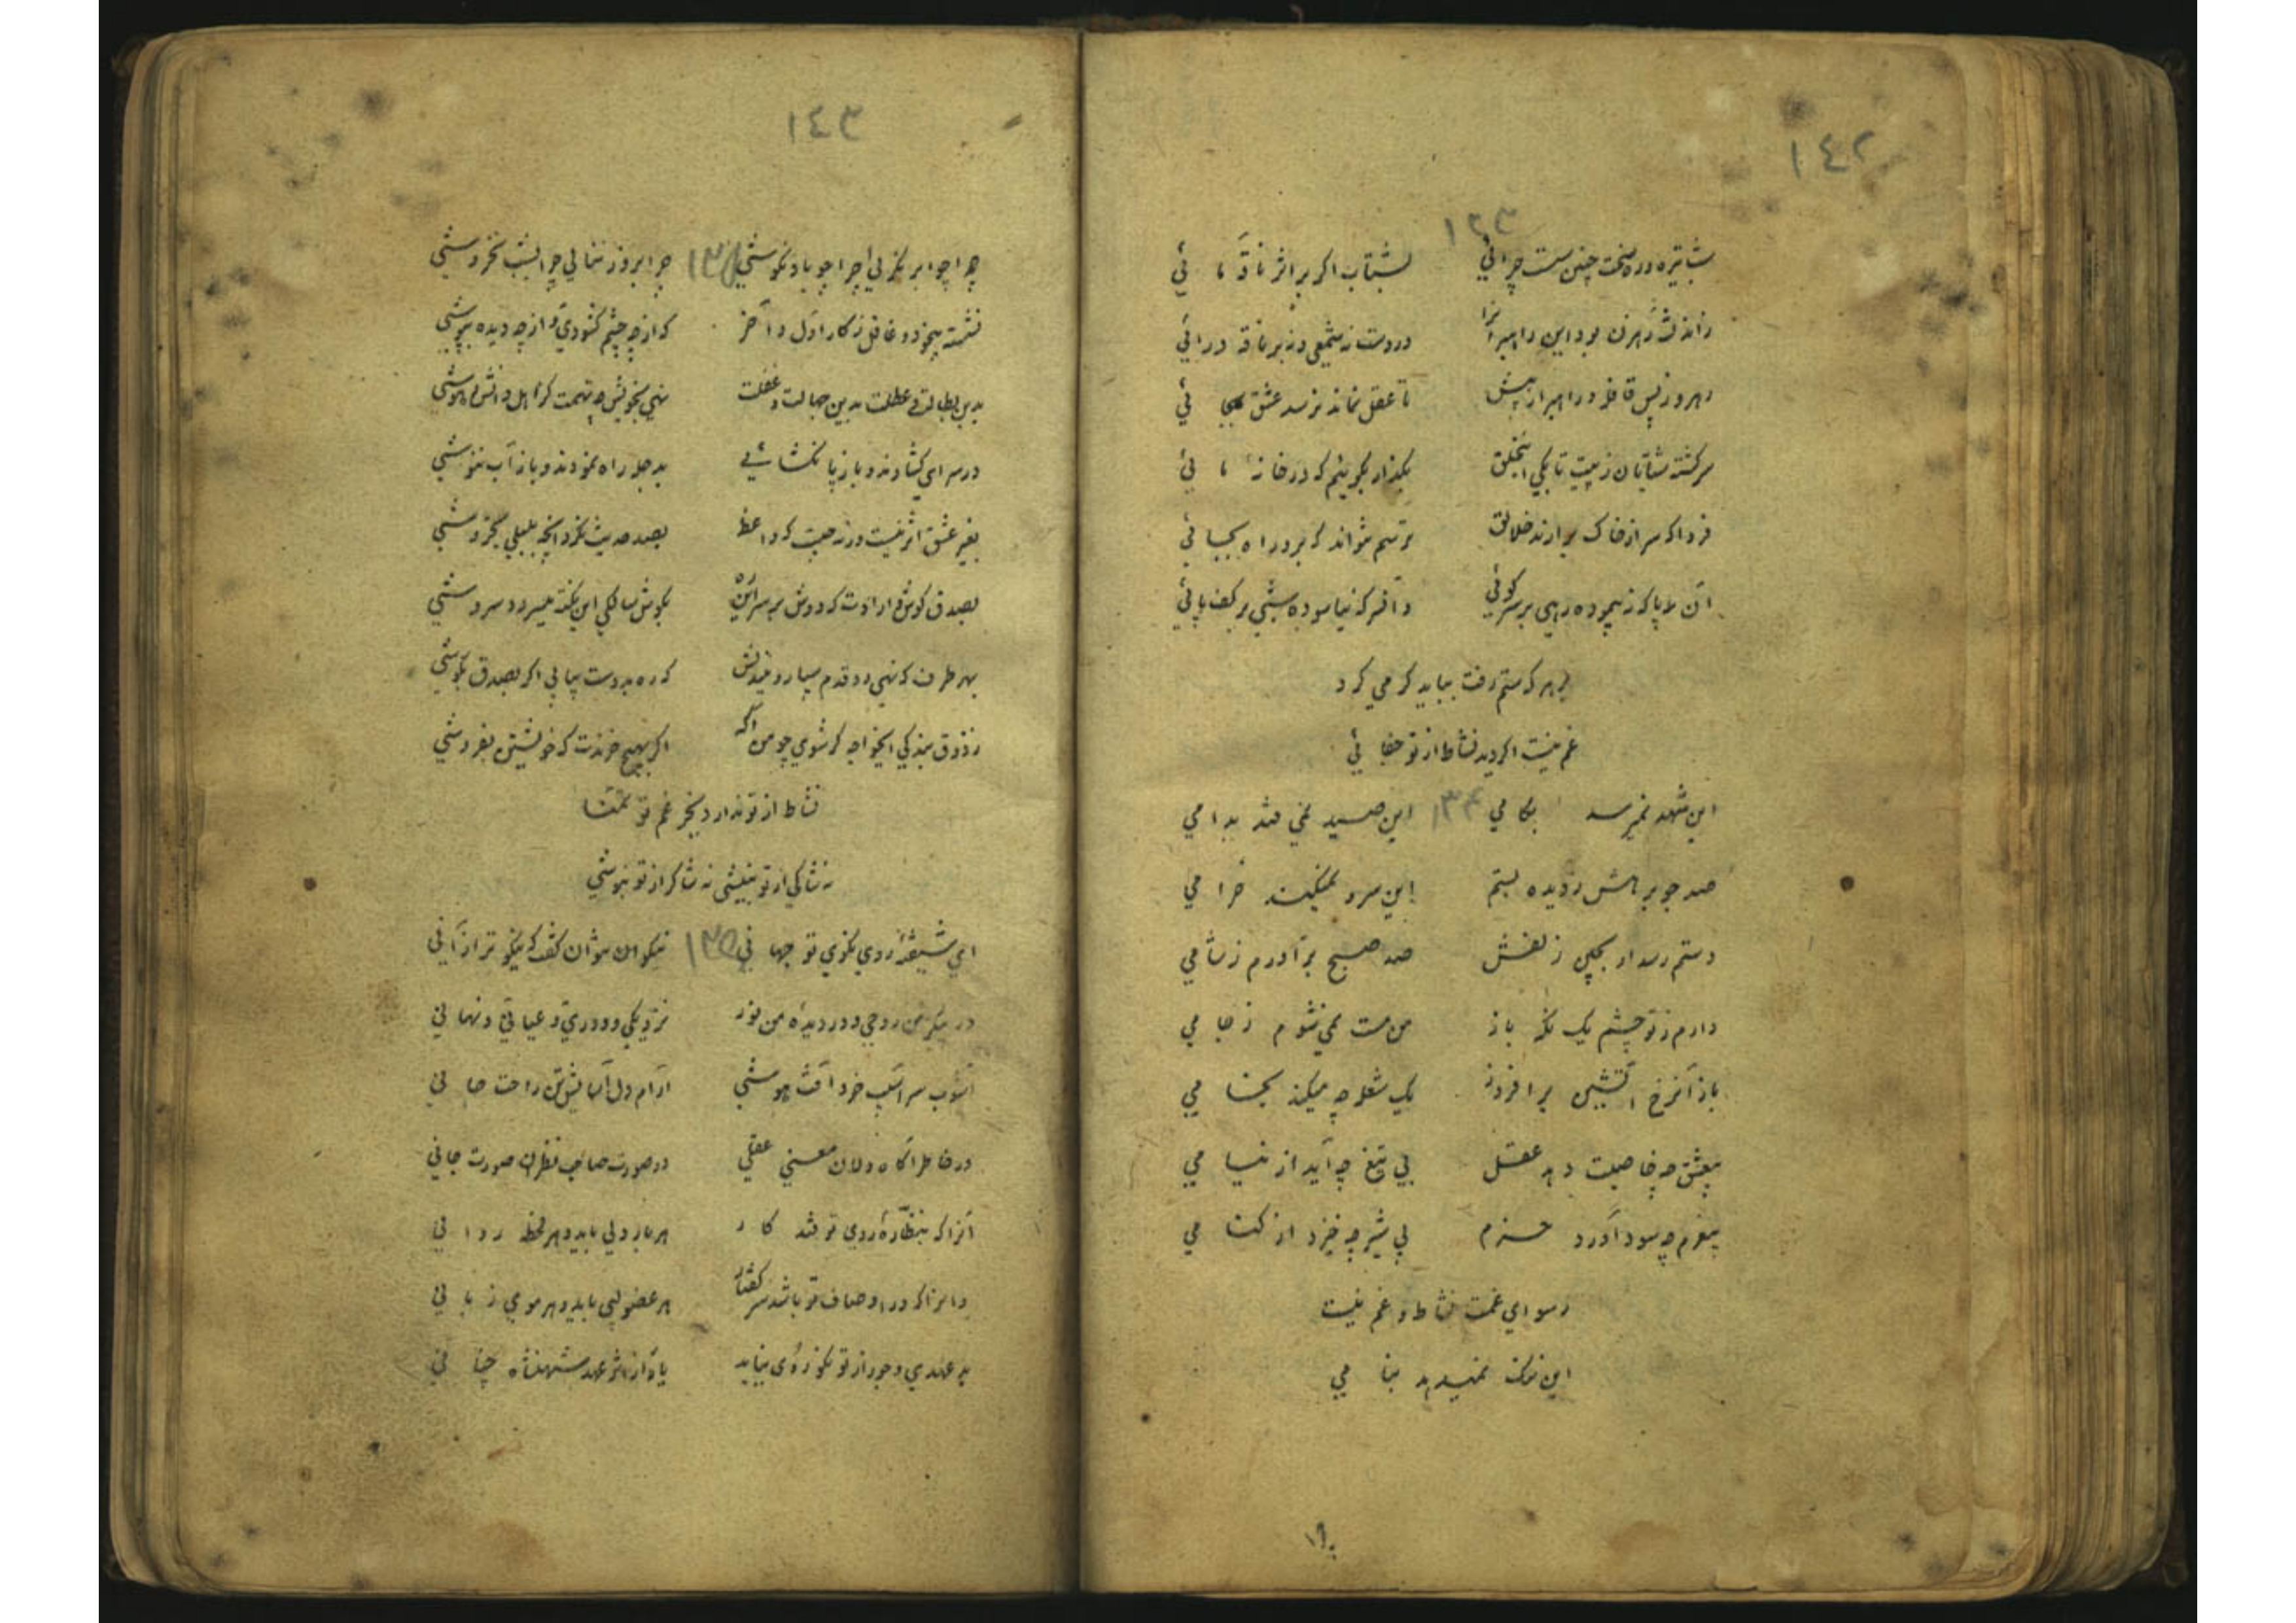 ١٤٢
١٣٣
شب تیره و ره سخت چنین سست چرائی بشتاب اکر بر اثر ناقه مائی
در دست نه شمعی و نه بر ناقه درائی
رهرو ز پس قافله و راهبر از پیش تا عقل نماند نرسد عشق بجائی
سرکشته شتابان ز پیت تا بکی اینخلق بکذار بکوییم که در خانه مائی
فردا که سر از خاک برآرند خلایق ترسم نتواند که برد راه بجائی
آن به پا که نپیموده رهی بر سر کوئی وآنسر که نیاسوده شبی بر کف پائی
بر هر که ستم رفت بباید کرمی کرد
غم نیست اکر دید نشاط از تو جفائی
این شهد نمیرسد بکامی ١٣٤ این صید نمی فتد بدامی
صد جو براهش ز دیده بستم این سرو نمیکند خرامی
دستم رسد ار بچین زلفش صد صبح برآورم ز شامی
دارم ز تو چشم یک نکه باز من مست نمی شوم ز جامی
باز آن رخ آتشین برافروز یک شعله چه میکند بخامی
بیعشق چه خاصیت دهد عقل بی تیغ چه آید از نیامی
بیعزم چه سود آورد حزم بی شیر چه خیزد از کنامی
رسوای غمت نشاط و غم نیست
این ننک نمیدهد بنامی
١٤٣
چرا چو ابر نکریی چرا چو باد نکوشی چرا بروز ننالی چرا بشب نخروشی
نشسته بیخود و غافل ز کار اول و آخر که از چه چشم کشودی و از چه دیده بپوشی
بدین بطالت و عطلت بدین جهالت و غفلت نهی بخویش چه تهمت که اهل دانش و هوشی
در سرای کشادند و باز پا نکشائی بدجله راه نمودند و باز آب ننوشی
بغیر عشق اثر نیست ورنه چیست که واعظ بصد حدیث نکرد آنچه بلبلی بخروشی
بصدق کوش و ارادت که دوش بر سر این ره بکوش سالکی این نکته میسرود سروشی
بهر طرف که نهی رو قدم سپار و میندیش که ره بدوست بیابی اکر بصدق بکوشی
ز ذوق بندکی ایخواجه کر شوی چو من آکه اکر بهیچ خرندت که خویشتن بفروشی
نشاط از تو ندارد بجز غم تو تمنا
نه شاکی ار تو بنیشی نه شاکر از تو بنوشی
ای شیفته روی نکوی تو جهانی ١٣٥ نیکو نتوان کفت که نیکوتر از آنی
در پیکر من روحی و در دیده من نور نزدیکی و دوری و عیانی و نهانی
آشوب سر آسیب خرد آفت هوشی آرام دل آسایش تن راحت جانی
در خاطر آکاه دلان معنی عقلی در صورت صاحب نظران صورت جانی
آنرا که بنظاره روی تو فتد کار هر بار دلی باید و هر لحظه روانی
وانرا که در اوصاف تو باشد سر کفتار هر عضو لبی باید و هر موی زبانی
بد عهدی و جور از تو نکوروی نیاید یاد آر ز عهد شهنشاه جهانی